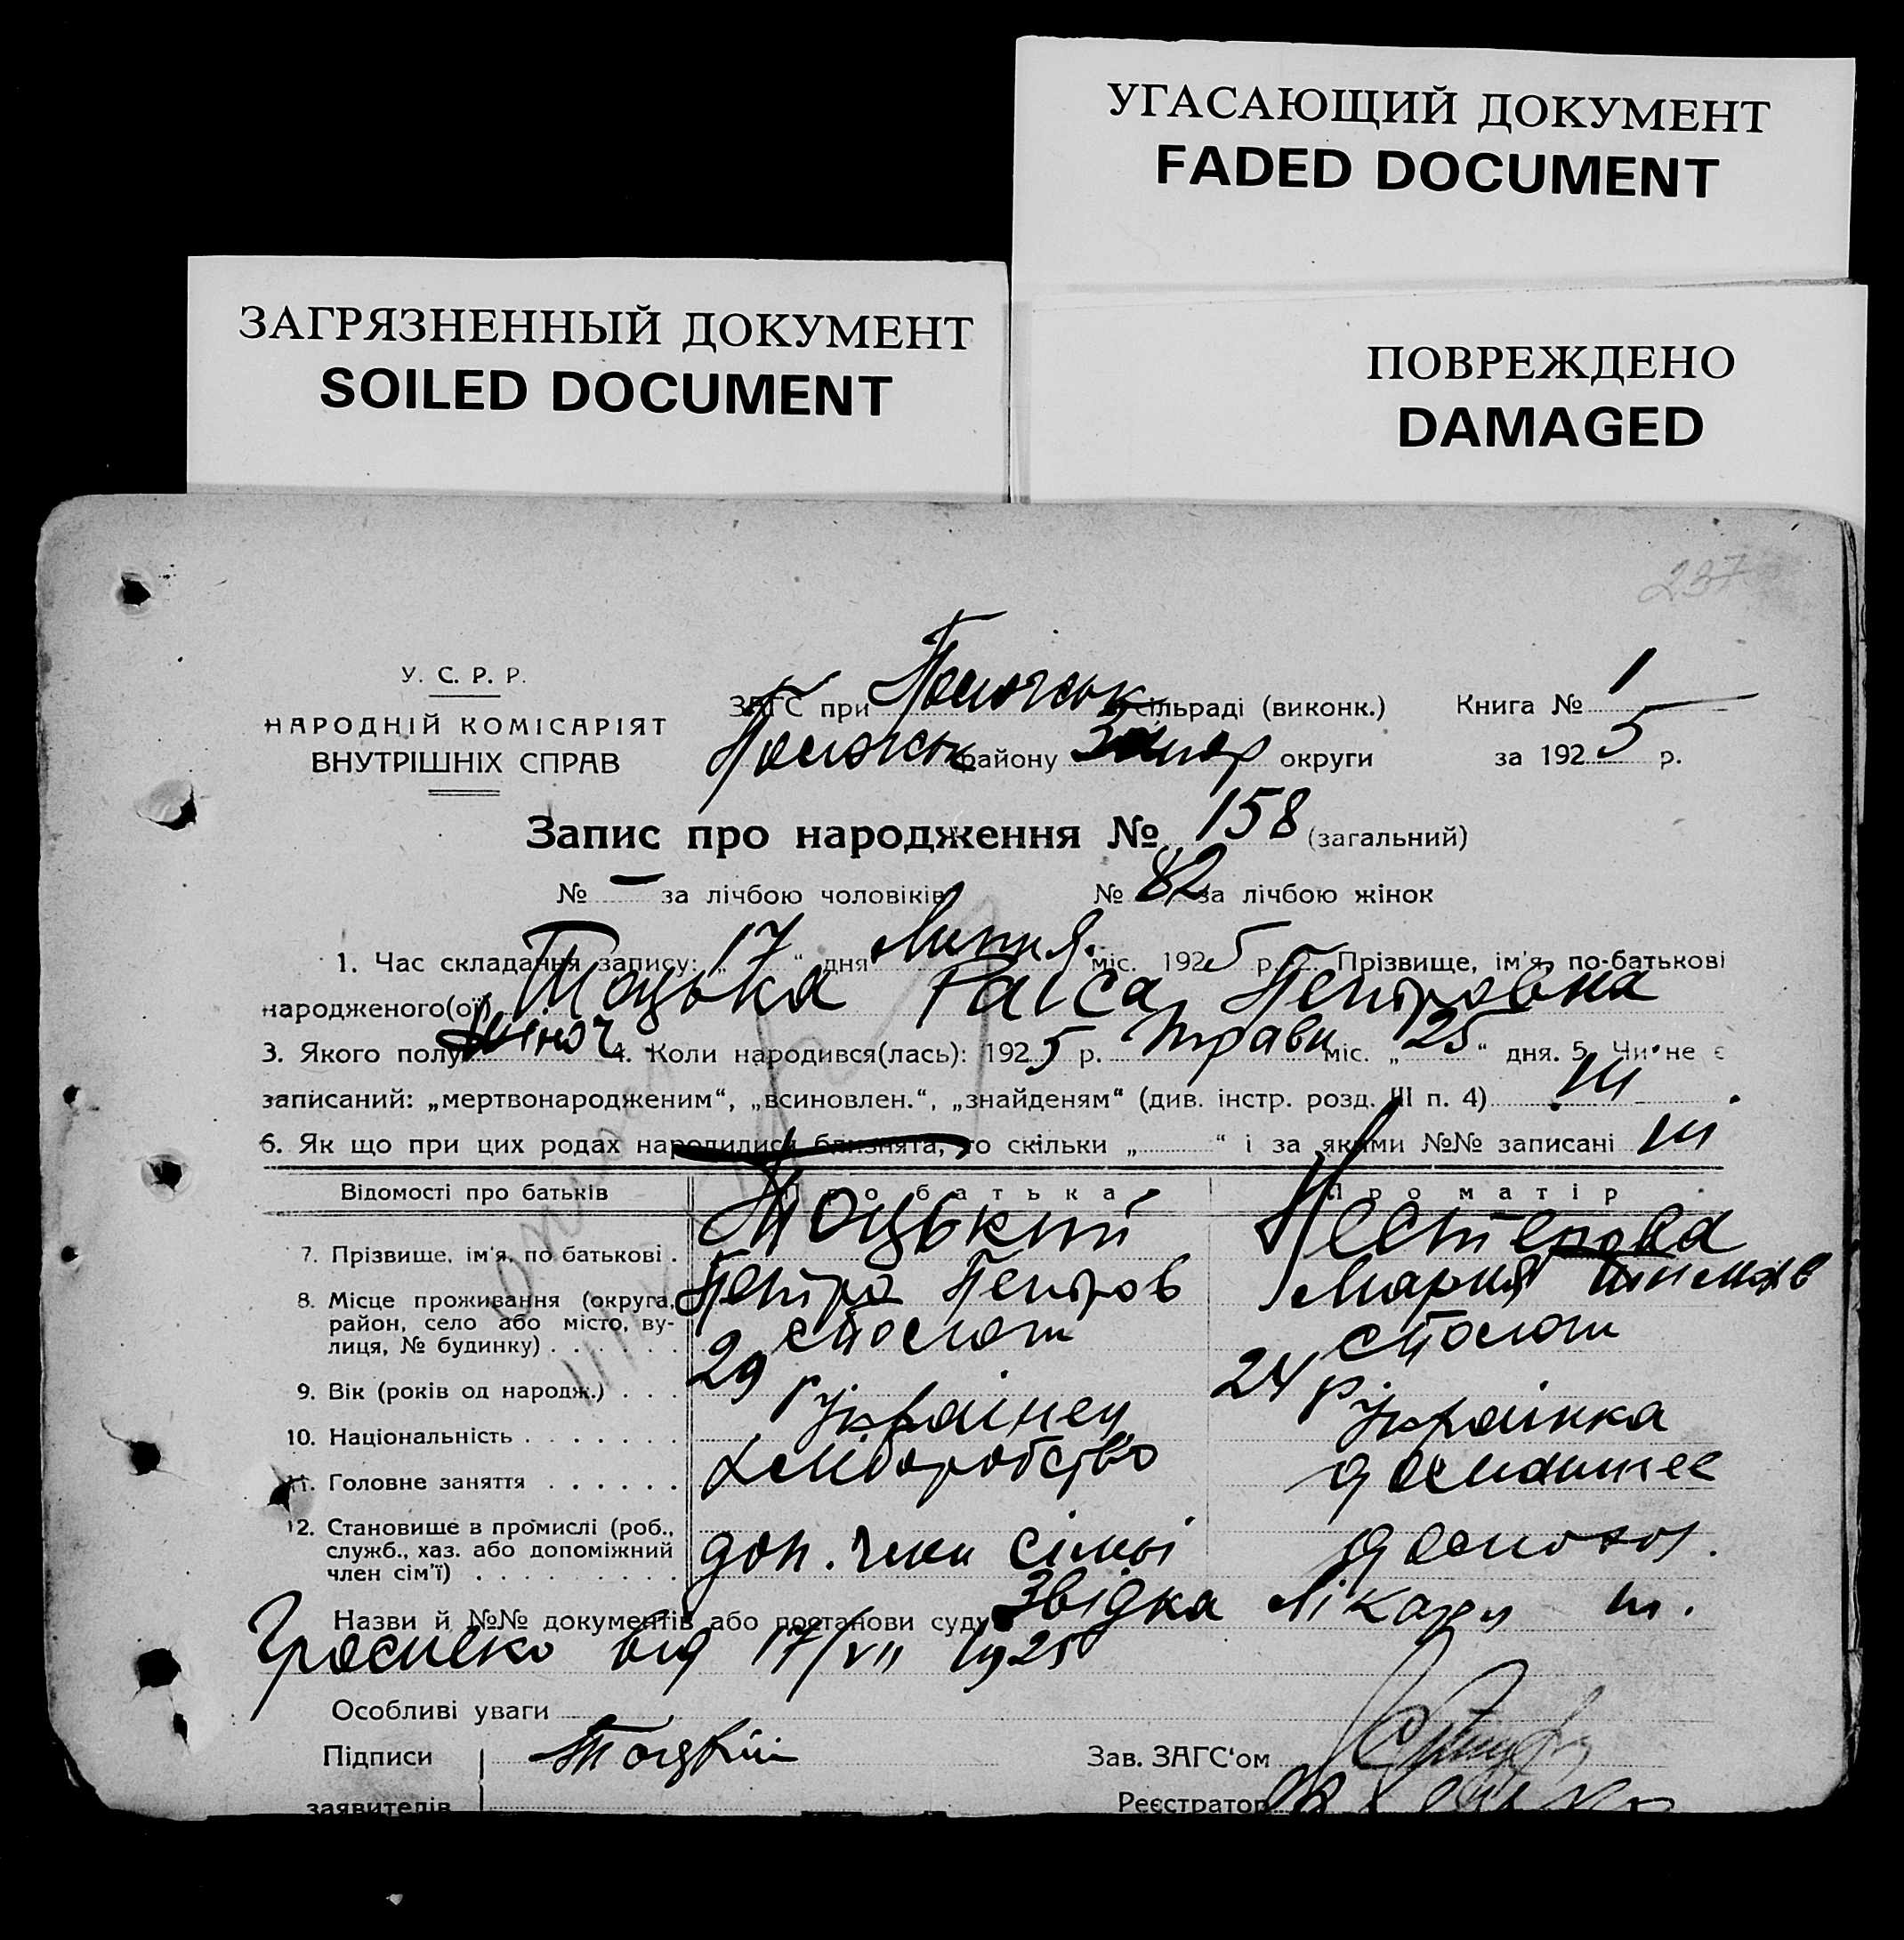 УГАСАЮЩИЙ ДОКУМЕНТ
FADED DOCUMENT
ЗАГРЯЗНЕННЫЙ ДОКУМЕНТ
SOILED DOCUMENT
ПОВРЕЖДЕНО
DAMAGED
237
У. С. Р. Р.
НАРОДНІЙ КОМІСАРІЯТ
ВНУТРІШНІХ СПРАВ
ЗАГС при сільраді (виконк.) Книга № 1
району Запор округи за 1925 р.
Запис про народження № 158 (загальний)
№ — за лічбою чоловіків № 82 за лічбою жінок
1. Час складання запису: „17“ дня Липня міс. 1925 р. 2. Прізвище, ім'я, по-батькові
народженого(ої) Тоцька Раіса Петровна
3. Якого полу жіноч 4. Коли народився(лась): 1925 р. травн міс. „25“ дня. 5. Чи не є
записаний: „мертвонародженим“, „всиновлен.“, „знайденям“ (див. інстр. розд. III п. 4)
6. Як що при цих родах народилися близнята, то скільки „ “ і за якими №№ записані
Відомості про батьків Про батька Про матір
7. Прізвище, ім'я, по батькові . Тоцький Нестерова
Петро Петров Мария
8. Місце проживання (округа, район, село або місто, вулиця, № будинку) . . . . . .
9. Вік (років од народж.) . . . 29 р 24 р
10. Національність . . . . . . . Українец Українка
11. Головне заняття . . . . . . хліборобство домашнее
12. Становище в промислі (роб., служб., хаз. або допоміжний член сім'ї) . . . . . . . . . доп. член сімьі домохоз.
Назви й №№ документів або постанови суду Звідка лікаря
від 17/VII 1925
Особливі уваги
Підписи Тоцкий Зав. ЗАГС‘ом
заявителів Реєстратор